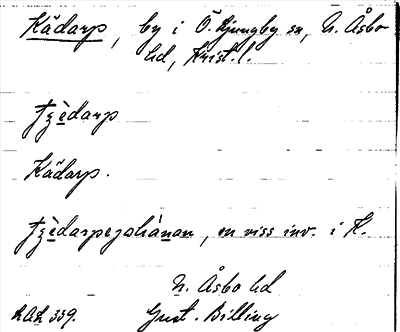 Kädarp, by i Ö. Ljungby sn, N. Åsbo
hd, Krist. l.
tzèdarp
Kädarp.
tzèdarpajohánan, en viss inv. i K.
N. Åsbo hd
LAL 339. Gust. Billing